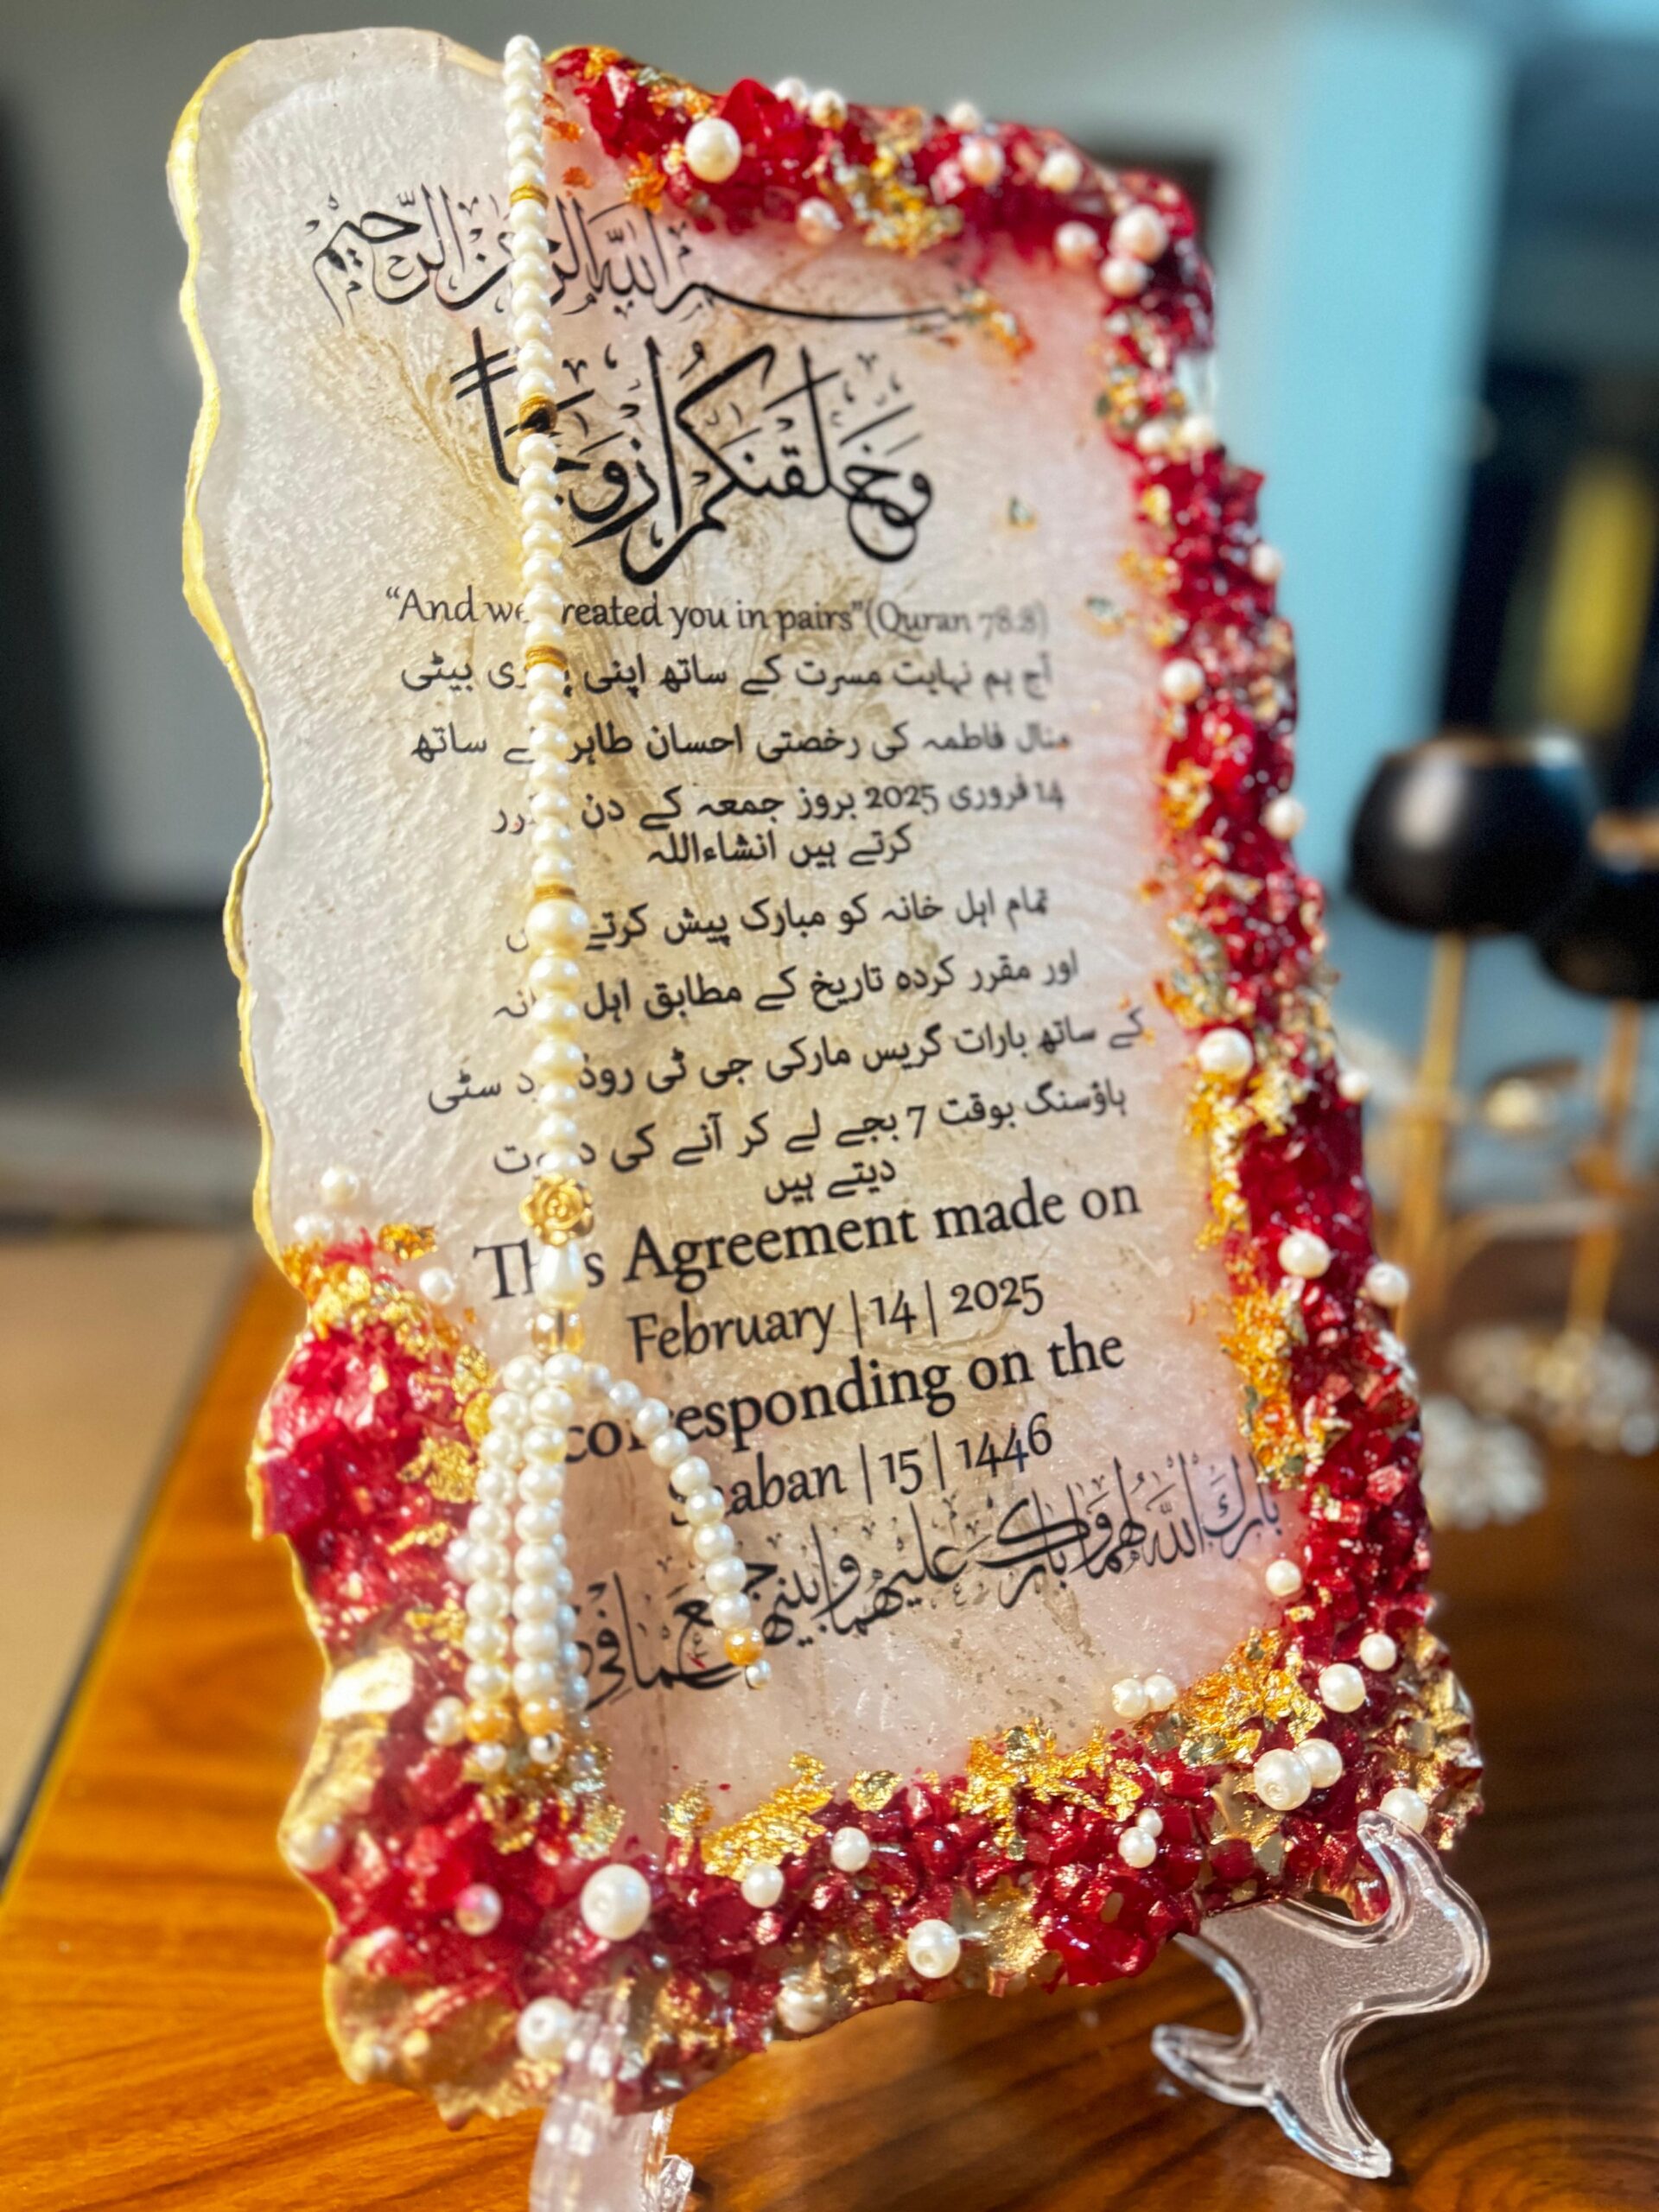 بسم الله الرحمن الرحيم
وخلقنكم ازوجا
“And we created you in pairs”(Quran 78:8)
آج ہم نہایت مسرت کے ساتھ اپنی پیاری بیٹی
منال فاطمہ کی رخصتی احسان طاہر کے ساتھ
14 فروری 2025 بروز جمعہ کے دن مقرر
کرتے ہیں انشاءاللہ
تمام اہل خانہ کو مبارک پیش کرتے ہیں
اور مقرر کردہ تاریخ کے مطابق اہل خانہ
کے ساتھ بارات گریس مارکی جی ٹی روڈ سٹی
ہاؤسنگ بوقت 7 بجے لے کر آنے کی دعوت
دیتے ہیں
This Agreement made on
February | 14 | 2025
corresponding on the
Shaaban | 15 | 1446
بارك الله لهما وبارك عليهما